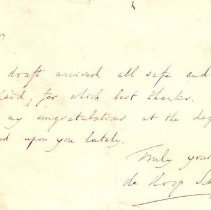 draft arrived all safe and
, for which best thanks.
my congratulations at the deg
ed upon you lately.
Truly your
de Hoop Sc